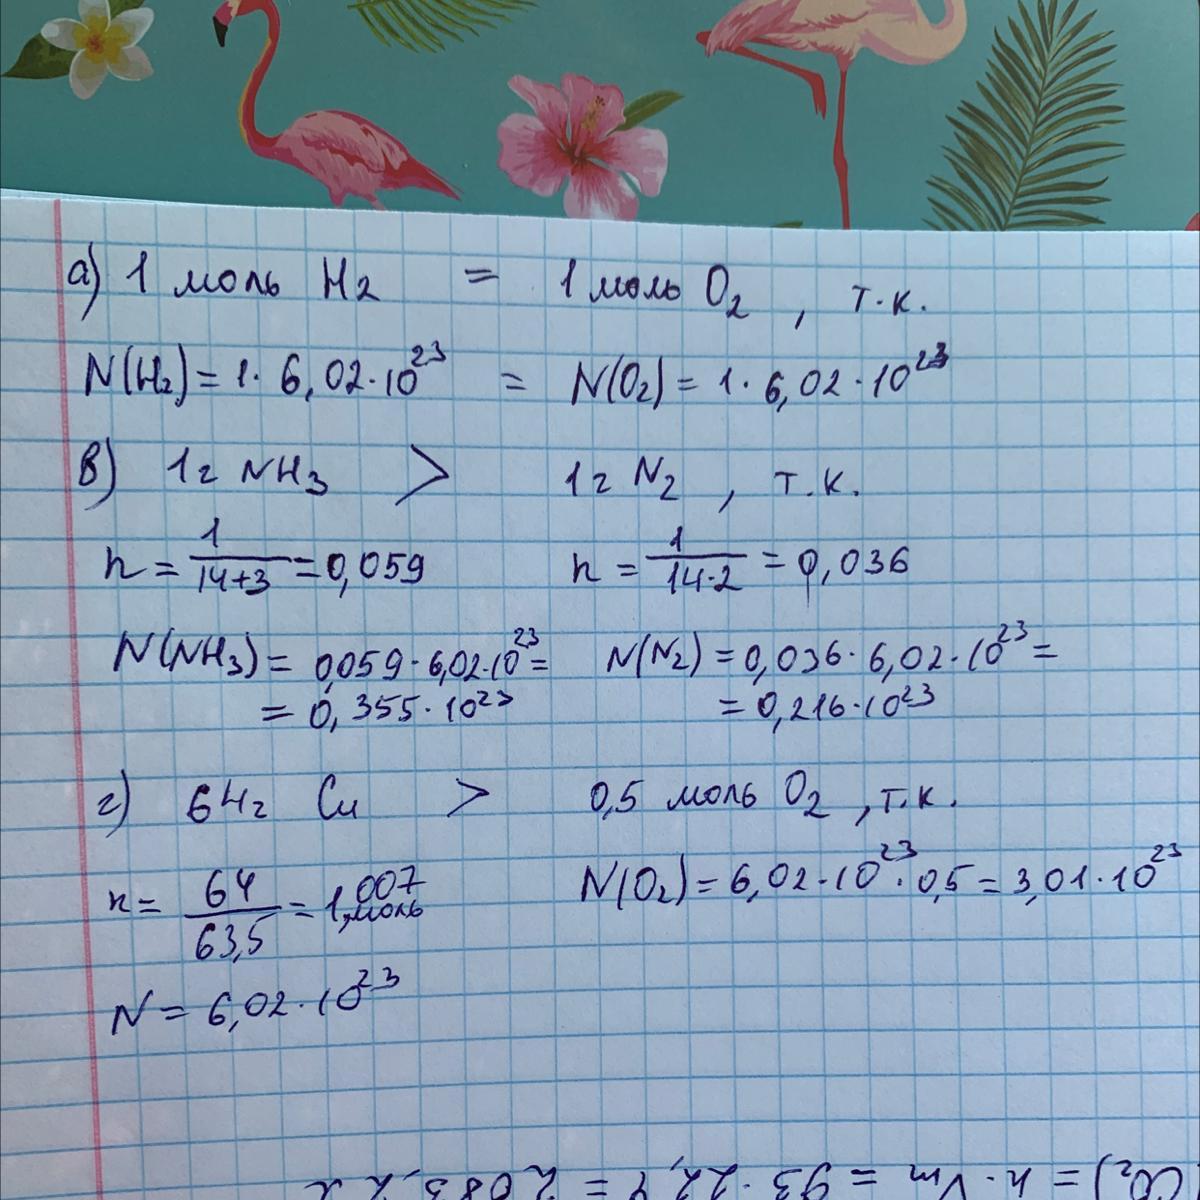 а) 1 моль H2 = 1 моль O2 , т.к.
N(H2) = 1 · 6,02 · 10^23 = N(O2) = 1 · 6,02 · 10^23
в) 1г NH3 > 1г N2 , т.к.
n = 1/(14+3) = 0,059 n = 1/(14·2) = 0,036
N(NH3) = 0,059 · 6,02 · 10^23 = N(N2) = 0,036 · 6,02 · 10^23 =
= 0,355 · 10^23 = 0,216 · 10^23
г) 64г Cu > 0,5 моль O2 , т.к.
n = 64/63,5 = 1,007 моль N(O2) = 6,02 · 10^23 · 0,5 = 3,01 · 10^23
N = 6,02 · 10^23
O2) = n · Vm = 93 · 22,4 = 2083,2 л